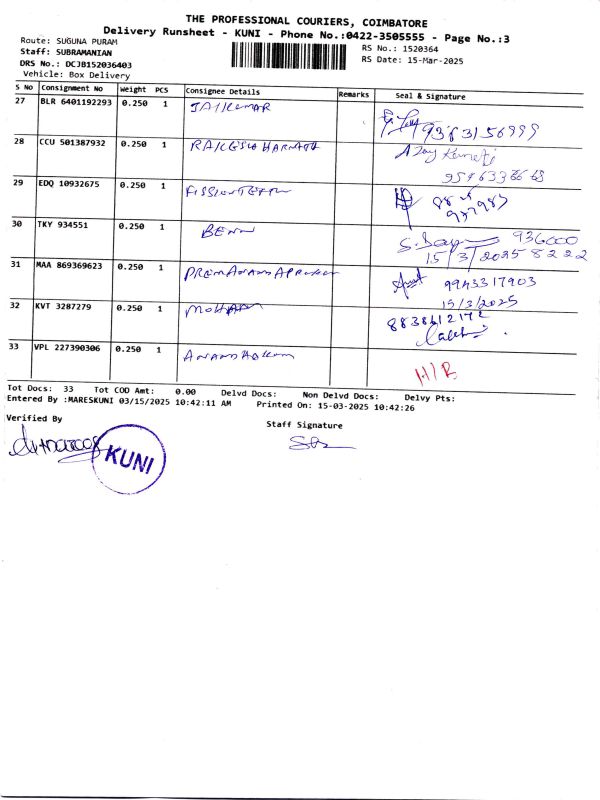 THE PROFESSIONAL COURIERS, COIMBATORE
Delivery Runsheet - KUNI - Phone No.:0422-3505555 - Page No.:3
Route: SUGUNA PURAM
RS No.: 1520364
Staff: SUBRAMANIAN
RS Date: 15-Mar-2025
DRS No.: DCJB152036403
Vehicle: Box Delivery
S No Consignment No Weight PCS Consignee Details Remarks Seal & Signature
27 BLR 6401192293 0.250 1 JAIKUMAR
93631 56999
28 CCU 501387932 0.250 1 RAKESH HARNATH
29 EDQ 10932675 0.250 1
30 TKY 934551 0.250 1 BENN
936000
15/3/2025 8222
31 MAA 869369623 0.250 1
9943317903
15/3/2025
32 KVT 3287279 0.250 1 MOHAN
8838612172
33 VPL 227390306 0.250 1
H/R
Tot Docs: 33 Tot COD Amt: 0.00 Delvd Docs: Non Delvd Docs: Delvy Pts:
Entered By :MARESKUNI 03/15/2025 10:42:11 AM Printed On: 15-03-2025 10:42:26
Verified By
Staff Signature
KUNI